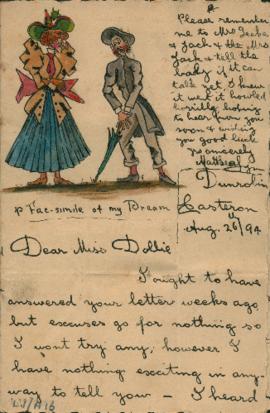 Please remember
me to Mrs
& Jack & the Mrs
Jack & tell the
baby if it can
talk yet I knew
it well it howled
horribly hoping
to hear from you
soon & wishing
you good luck
yo sincerely
Dunrobin
Casterton
Aug. 26/94
A Fac-simile of my Dream
Dear Miss Dobbie
I ought to have
answered your letter weeks ago
but excuses go for nothing so
I wont try any, however I
have nothing exciting in any-
way to tell you — I heard